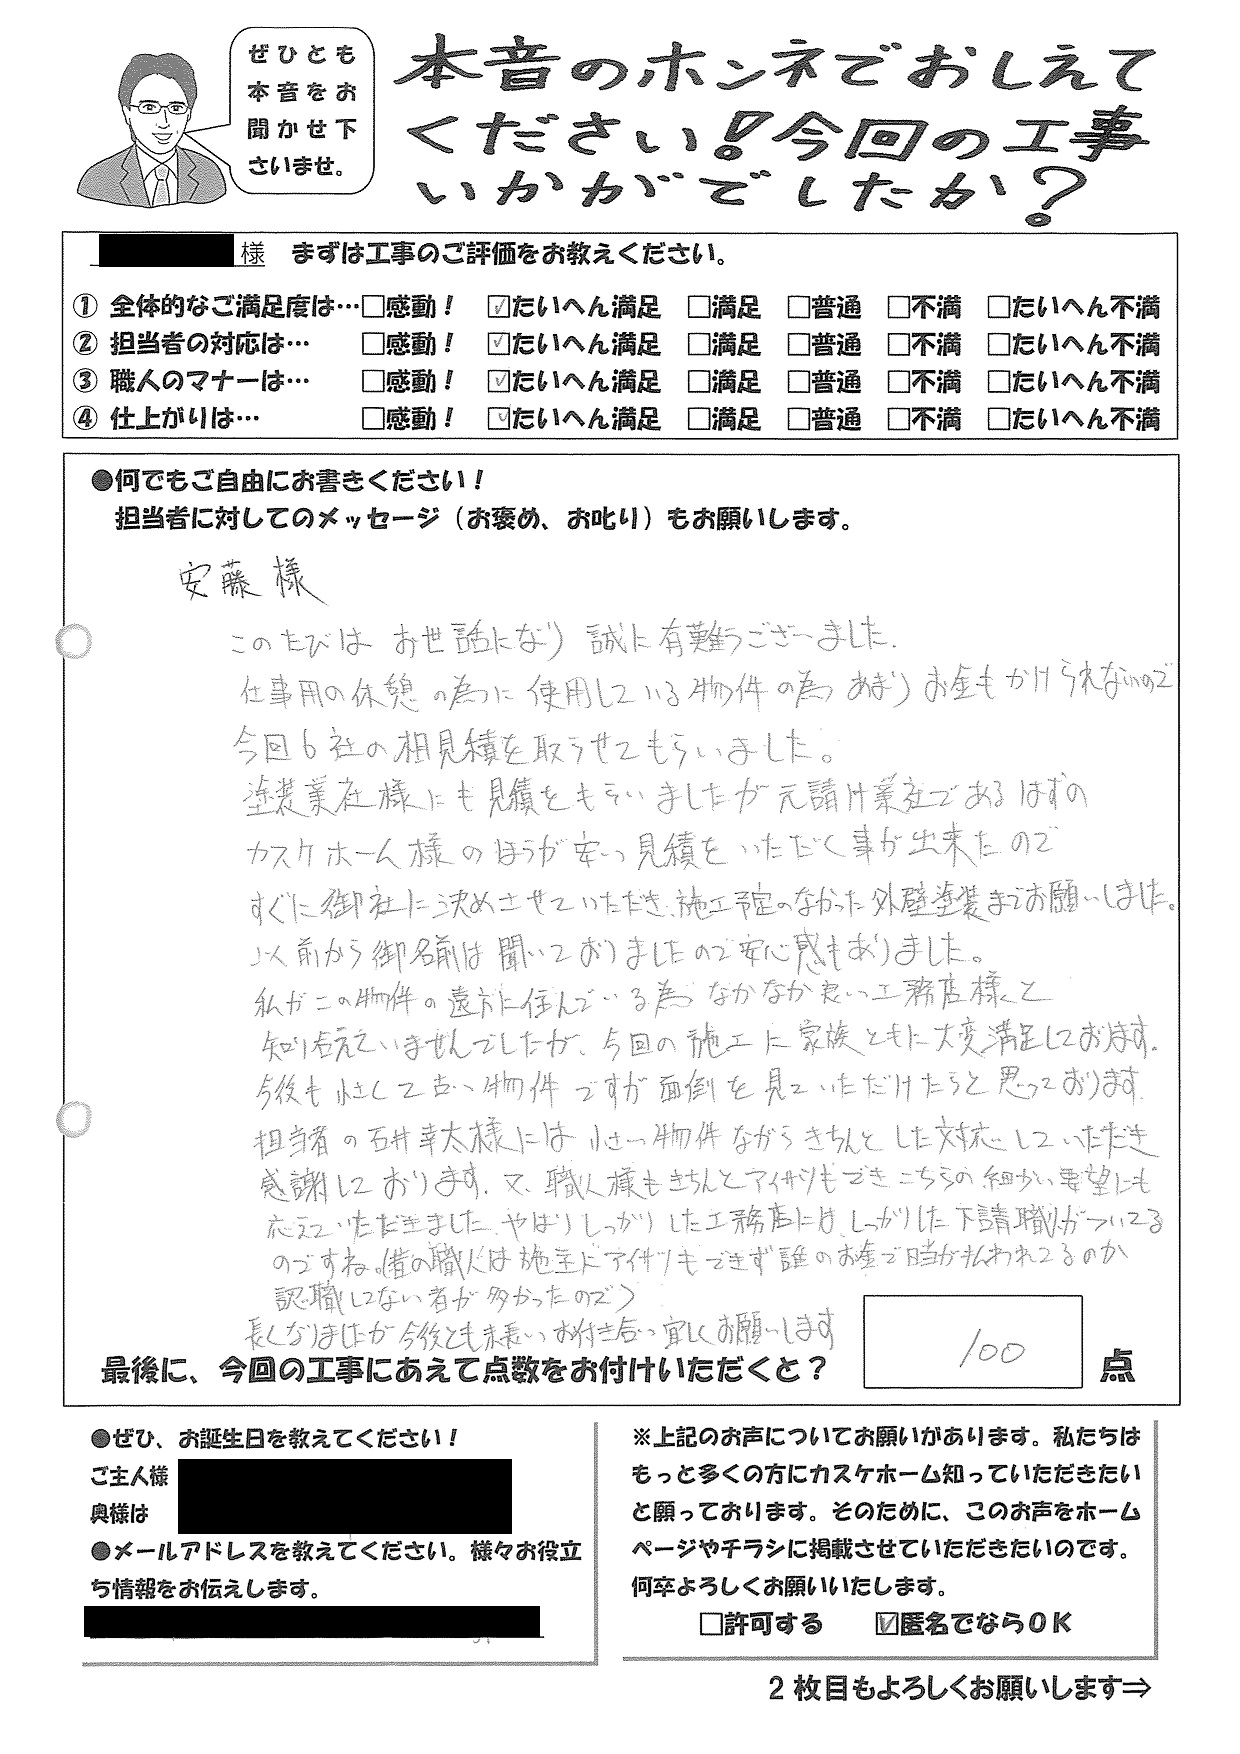 ぜひとも
本音をお
聞かせ下
さいませ。
本音のホンネでおしえて
ください！今回の工事
いかがでしたか？
様 まずは工事のご評価をお教えください。
① 全体的なご満足度は…□感動！ ☑たいへん満足 □満足 □普通 □不満 □たいへん不満
② 担当者の対応は… □感動！ ☑たいへん満足 □満足 □普通 □不満 □たいへん不満
③ 職人のマナーは… □感動！ ☑たいへん満足 □満足 □普通 □不満 □たいへん不満
④ 仕上がりは… □感動！ ☑たいへん満足 □満足 □普通 □不満 □たいへん不満
●何でもご自由にお書きください！
担当者に対してのメッセージ（お褒め、お叱り）もお願いします。
安藤様
このたびは お世話になり 誠に有難うございました.
仕事用の休憩の為に使用している物件の為 あまりお金もかけられないので
今回6社の相見積を取らせてもらいました。
塗装業社様にも見積をもらいましたが元請け業社であるはずの
カスケホーム様のほうが安い見積をいただく事が出来たので
すぐに御社に決めさせていただき、施工予定のなかった外壁塗装までお願いしました。
以前から御名前は聞いておりましたので安心感もありました。
私がこの物件の遠方に住んでいる為 なかなか良い工務店様と
知り合えていませんでしたが、今回の施工に家族ともに大変満足しております.
今後も小さくて古い物件ですが面倒を見ていただけたらと思っております.
担当者の石井幸太様には小さい物件ながらきちんとした対応していただき
感謝しております. 又、職人様もきちんとアイサツもでき こちらの細かい要望にも
応えていただきました. やはりしっかりした工務店には、しっかりした下請職人がついてる
のですね。(昔の職人は施主にアイサツもできず誰のお金で日当が払われてるのか
認職してない者が多かったので)
長くなりましたが今後とも末長いお付き合い宜しくお願いします
最後に、今回の工事にあえて点数をお付けいただくと？ 100 点
●ぜひ、お誕生日を教えてください！
ご主人様
奥様は
●メールアドレスを教えてください。様々お役立
ち情報をお伝えします。
※上記のお声についてお願いがあります。私たちは
もっと多くの方にカスケホーム知っていただきたい
と願っております。そのために、このお声をホーム
ページやチラシに掲載させていただきたいのです。
何卒よろしくお願いいたします。
□許可する ☑匿名でならOK
2枚目もよろしくお願いします⇒